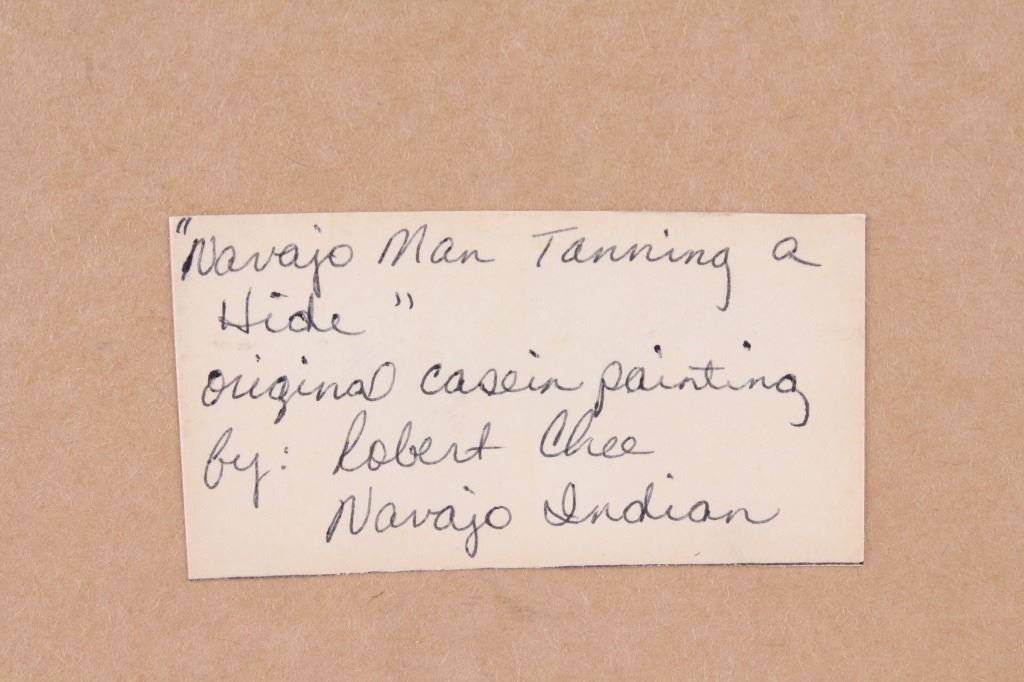 "Navajo Man Tanning a
Hide"
original casein painting
by: Robert Chee
Navajo Indian